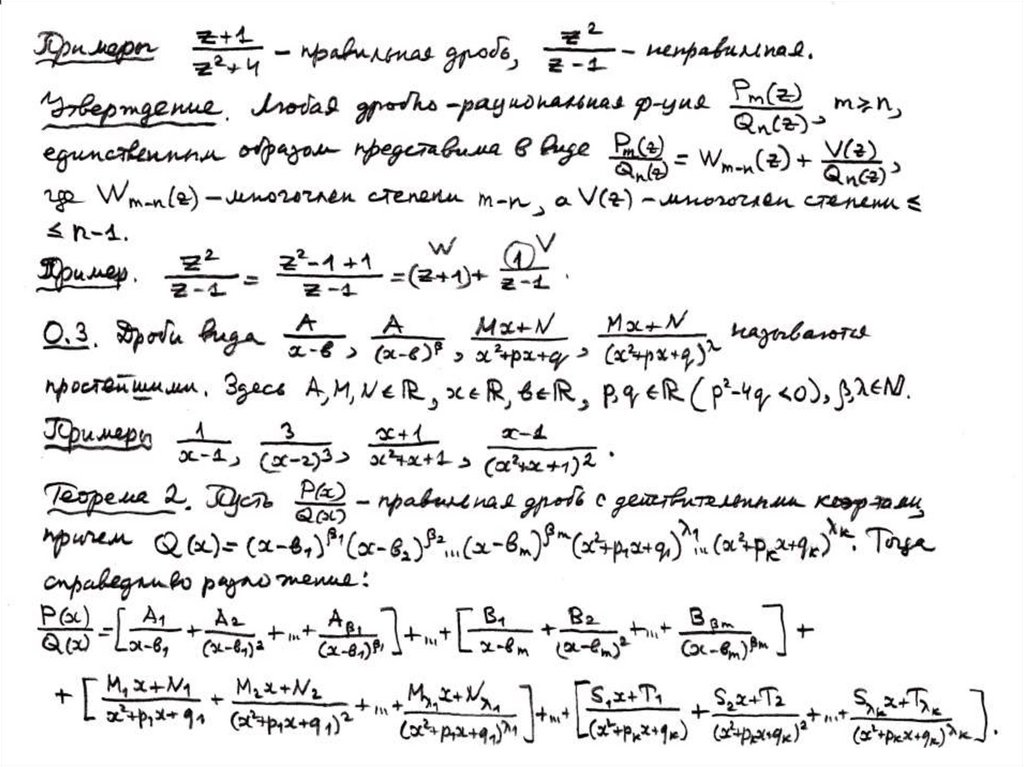 Примеры (z+1)/(z²+4) – правильная дробь, z²/(z-1) – неправильная.
Утверждение. Любая дробно-рациональная ф-ция Pm(z)/Qn(z), m≥n,
единственным образом представима в виде Pm(z)/Qn(z) = Wm-n(z) + V(z)/Qn(z),
где Wm-n(z) – многочлен степени m-n, а V(z) – многочлен степени ≤
≤ n-1.
Пример. z²/(z-1) = (z²-1+1)/(z-1) = (z+1) + 1/(z-1). W V
О.3. Дроби вида A/(x-в), A/(x-в)^β, (Mx+N)/(x²+px+q), (Mx+N)/(x²+px+q)^λ называются
простейшими. Здесь A, M, N ∈ ℝ, x ∈ ℝ, в ∈ ℝ, p, q ∈ ℝ (p²-4q <0), β, λ ∈ ℕ.
Примеры 1/(x-1), 3/(x-2)³, (x+1)/(x²+x+1), (x-1)/(x²+x+1)².
Теорема 2. Пусть P(x)/Q(x) – правильная дробь с действительными коэф-тами,
причем Q(x) = (x-в₁)^β₁ (x-в₂)^β₂ ... (x-вm)^βm (x²+p₁x+q₁)^λ₁ ... (x²+pкx+qк)^λк. Тогда
справедливо разложение:
P(x)/Q(x) = [A₁/(x-в₁) + A₂/(x-в₁)² + ... + Aβ₁/(x-в₁)^β₁] + ... + [B₁/(x-вm) + B₂/(x-вm)² + ... + Bβm/(x-вm)^βm] +
+ [(M₁x+N₁)/(x²+p₁x+q₁) + (M₂x+N₂)/(x²+p₁x+q₁)² + ... + (Mλ₁x+Nλ₁)/(x²+p₁x+q₁)^λ₁] + ... + [(S₁x+T₁)/(x²+pкx+qк) + (S₂x+T₂)/(x²+pкx+qк)² + ... + (Sλкx+Tλк)/(x²+pкx+qк)^λк].